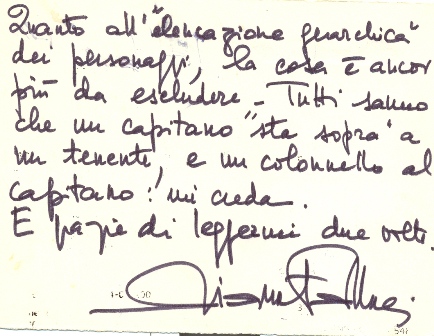 Quanto all'"elencazione gerarchica"
dei personaggi, la cosa è ancor
più da escludere - Tutti sanno
che un capitano "sta sopra" a
un tenente, e un colonnello al
capitano: mi creda.
E grazie di leggermi due volte.